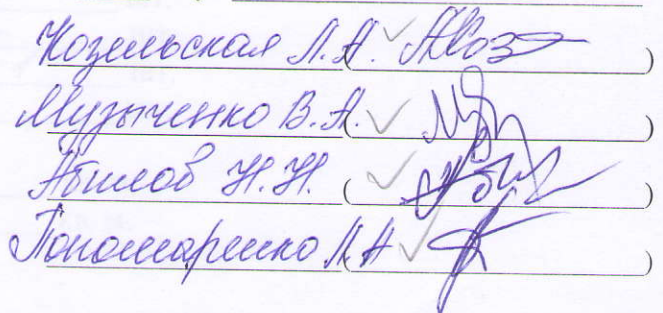 Козельская Л.А. ( )
Музыченко В.А. ( )
Абилов Н.Н. ( )
Пономаренко Л.А ( )